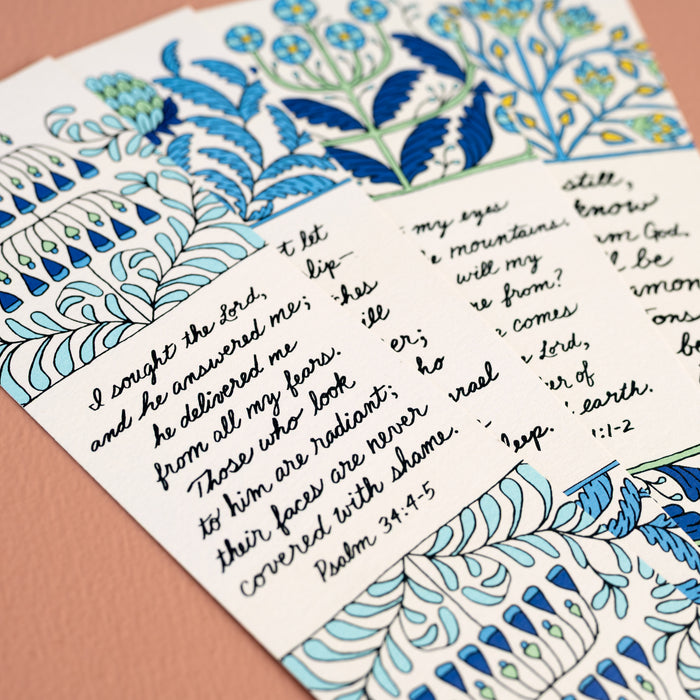 I sought the Lord,
and he answered me;
he delivered me
from all my fears.
Those who look
to him are radiant;
their faces are never
covered with shame.
Psalm 34:4-5
t let
lip-
hes
ill
er;
ho
rael
-
leep.
my eyes
e mountains.
will my
e from?
comes
Lord,
er of
earth.
1:1-2
still,
know
am God.
l be
amon
ons
be